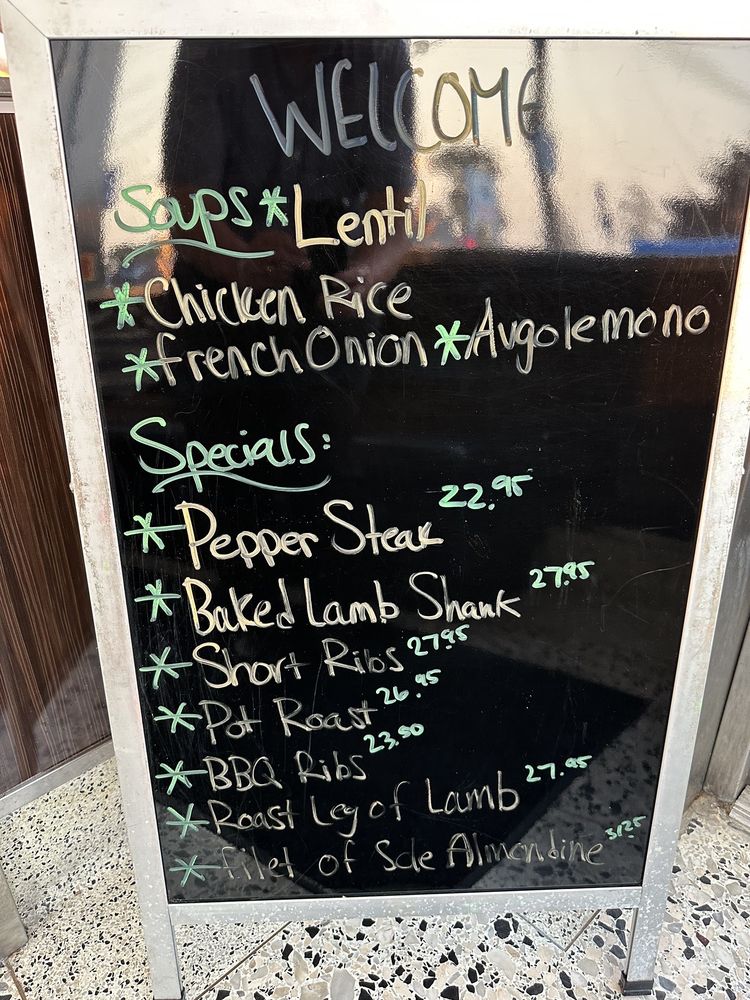 WELCOME
Soups * Lentil
* Chicken Rice
* French Onion * Avgolemono
Specials:
* Pepper Steak 22.95
* Baked Lamb Shank 27.95
* Short Ribs 27.95
* Pot Roast 26.95
* BBQ Ribs 23.50
* Roast Leg of Lamb 27.95
* Filet of Sole Almondine 31.25